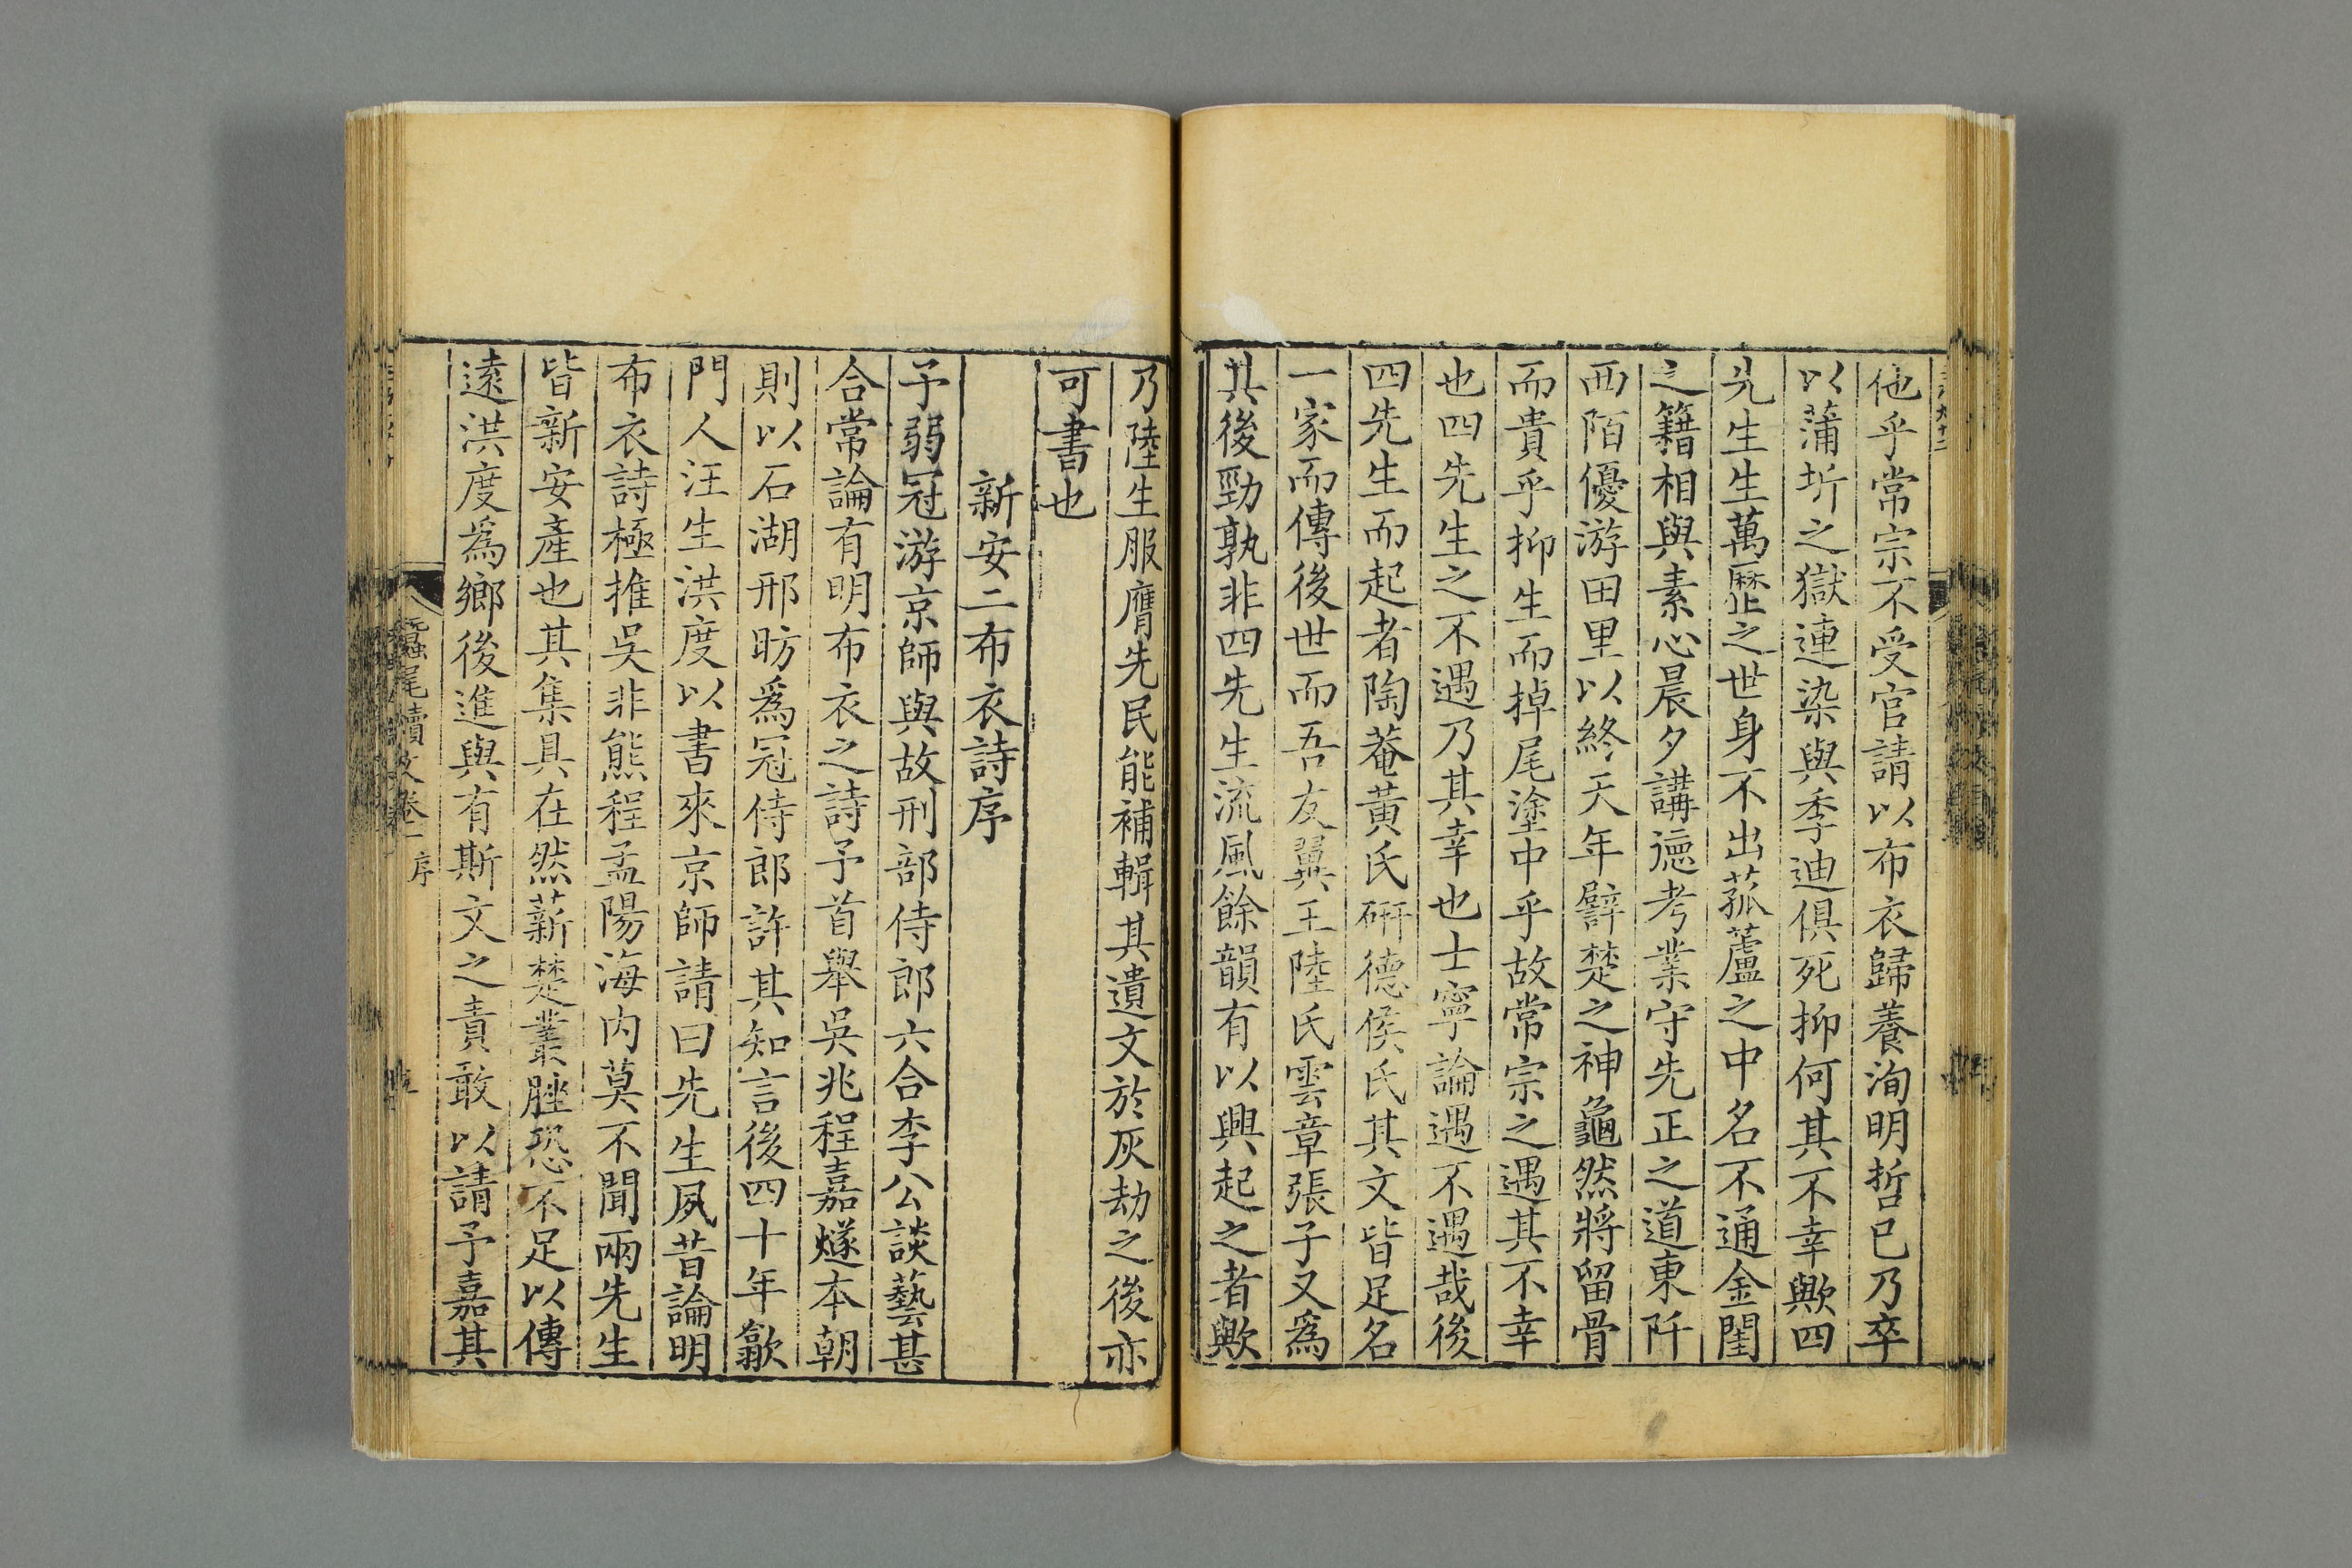 他乎常宗不受官請以布衣歸養洵明哲已乃卒
以蒲圻之獄連染與季迪俱死抑何其不幸歟四
先生生萬歷之世身不出菰蘆之中名不通金閨
之籍相與素心晨夕講德考業守先正之道東阡
西陌優游田里以終天年譬楚之神龜然將留骨
而貴乎抑生而掉尾塗中乎故常宗之遇其不幸
也四先生之不遇乃其幸也士寧論遇不遇哉後
四先生而起者陶菴黃氏研德侯氏其文皆足名
一家而傳後世而吾友翼王陸氏雲章張子又為
其後勁孰非四先生流風餘韻有以興起之者歟
乃陸生服膺先民能補輯其遺文於灰劫之後亦
可書也
新安二布衣詩序
予弱冠游京師與故刑部侍郎六合李公談藝甚
合常論有明布衣之詩予首舉吳兆程嘉燧本朝
則以石湖邢昉為冠侍郎許其知言後四十年歙
門人汪生洪度以書來京師請曰先生夙昔論明
布衣詩極推吳非熊程孟陽海內莫不聞兩先生
皆新安產也其集具在然薪楚叢脞恐不足以傳
遠洪度為鄉後進與有斯文之責敢以請予嘉其
蠶尾續文卷一 序